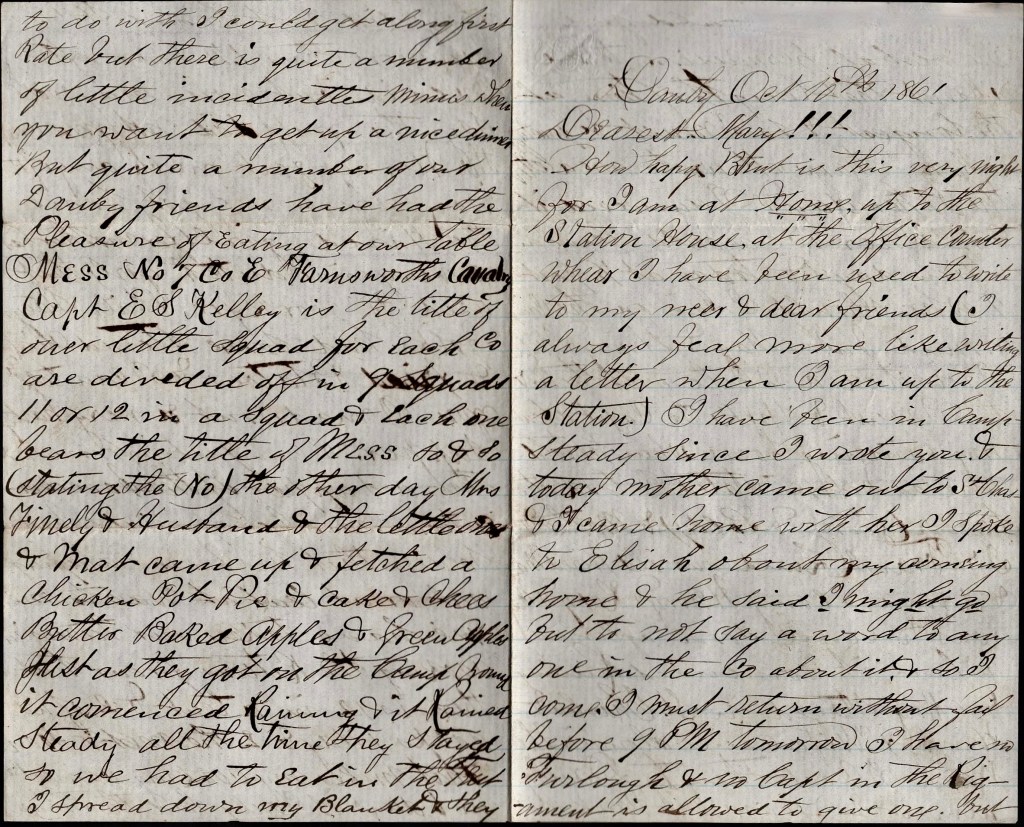 to do with I could get along first
Rate but there is quite a number
of little incidentles minus when
you want to get up a nice dinner
But quite a number of our
Danby friends have had the
Pleasure of Eating at our Table
Mess No 7 Co E Farnsworths Cavalry
Capt E S Kelley is the title of
ouer little Squad for Each Co
are divided off in 9 Squads
11 or 12 in a Squad & Each one
bears the title of Mess so & so
(stating the No) the other day Mrs
Finely & Husband & the little ones
& Mat came up & fetched a
Chicken Pot Pie & Cake & Chees
Butter Baked Apples & Green Apples
Just as they got on the Camp Ground
it comenced Raining & it Rained
Steady all the time they stayed
so we had to Eat in the Tent
I spread down my Blanket & they
Danby Oct 10th 1861
Dearest Mary!!!
How hapy Brut is this very night
for I am at Home, up to the
Station House at the Office Counter
Whear I have been used to write
to my neer & dear friends (I
always feal more like writing
a letter when I am up to the
Station.) I have been in Camp
Steady Since I wrote you &
today mother came out to St Chas
& I came home with her I spoke
to Elisah about my coming
home & he said I might go
but to not say a word to any
one in the Co about it & so I
come. I must return without fail
before 9 PM tomorrow I have no
Furlough & no Capt in the Rig-
ament is allowed to give one. but